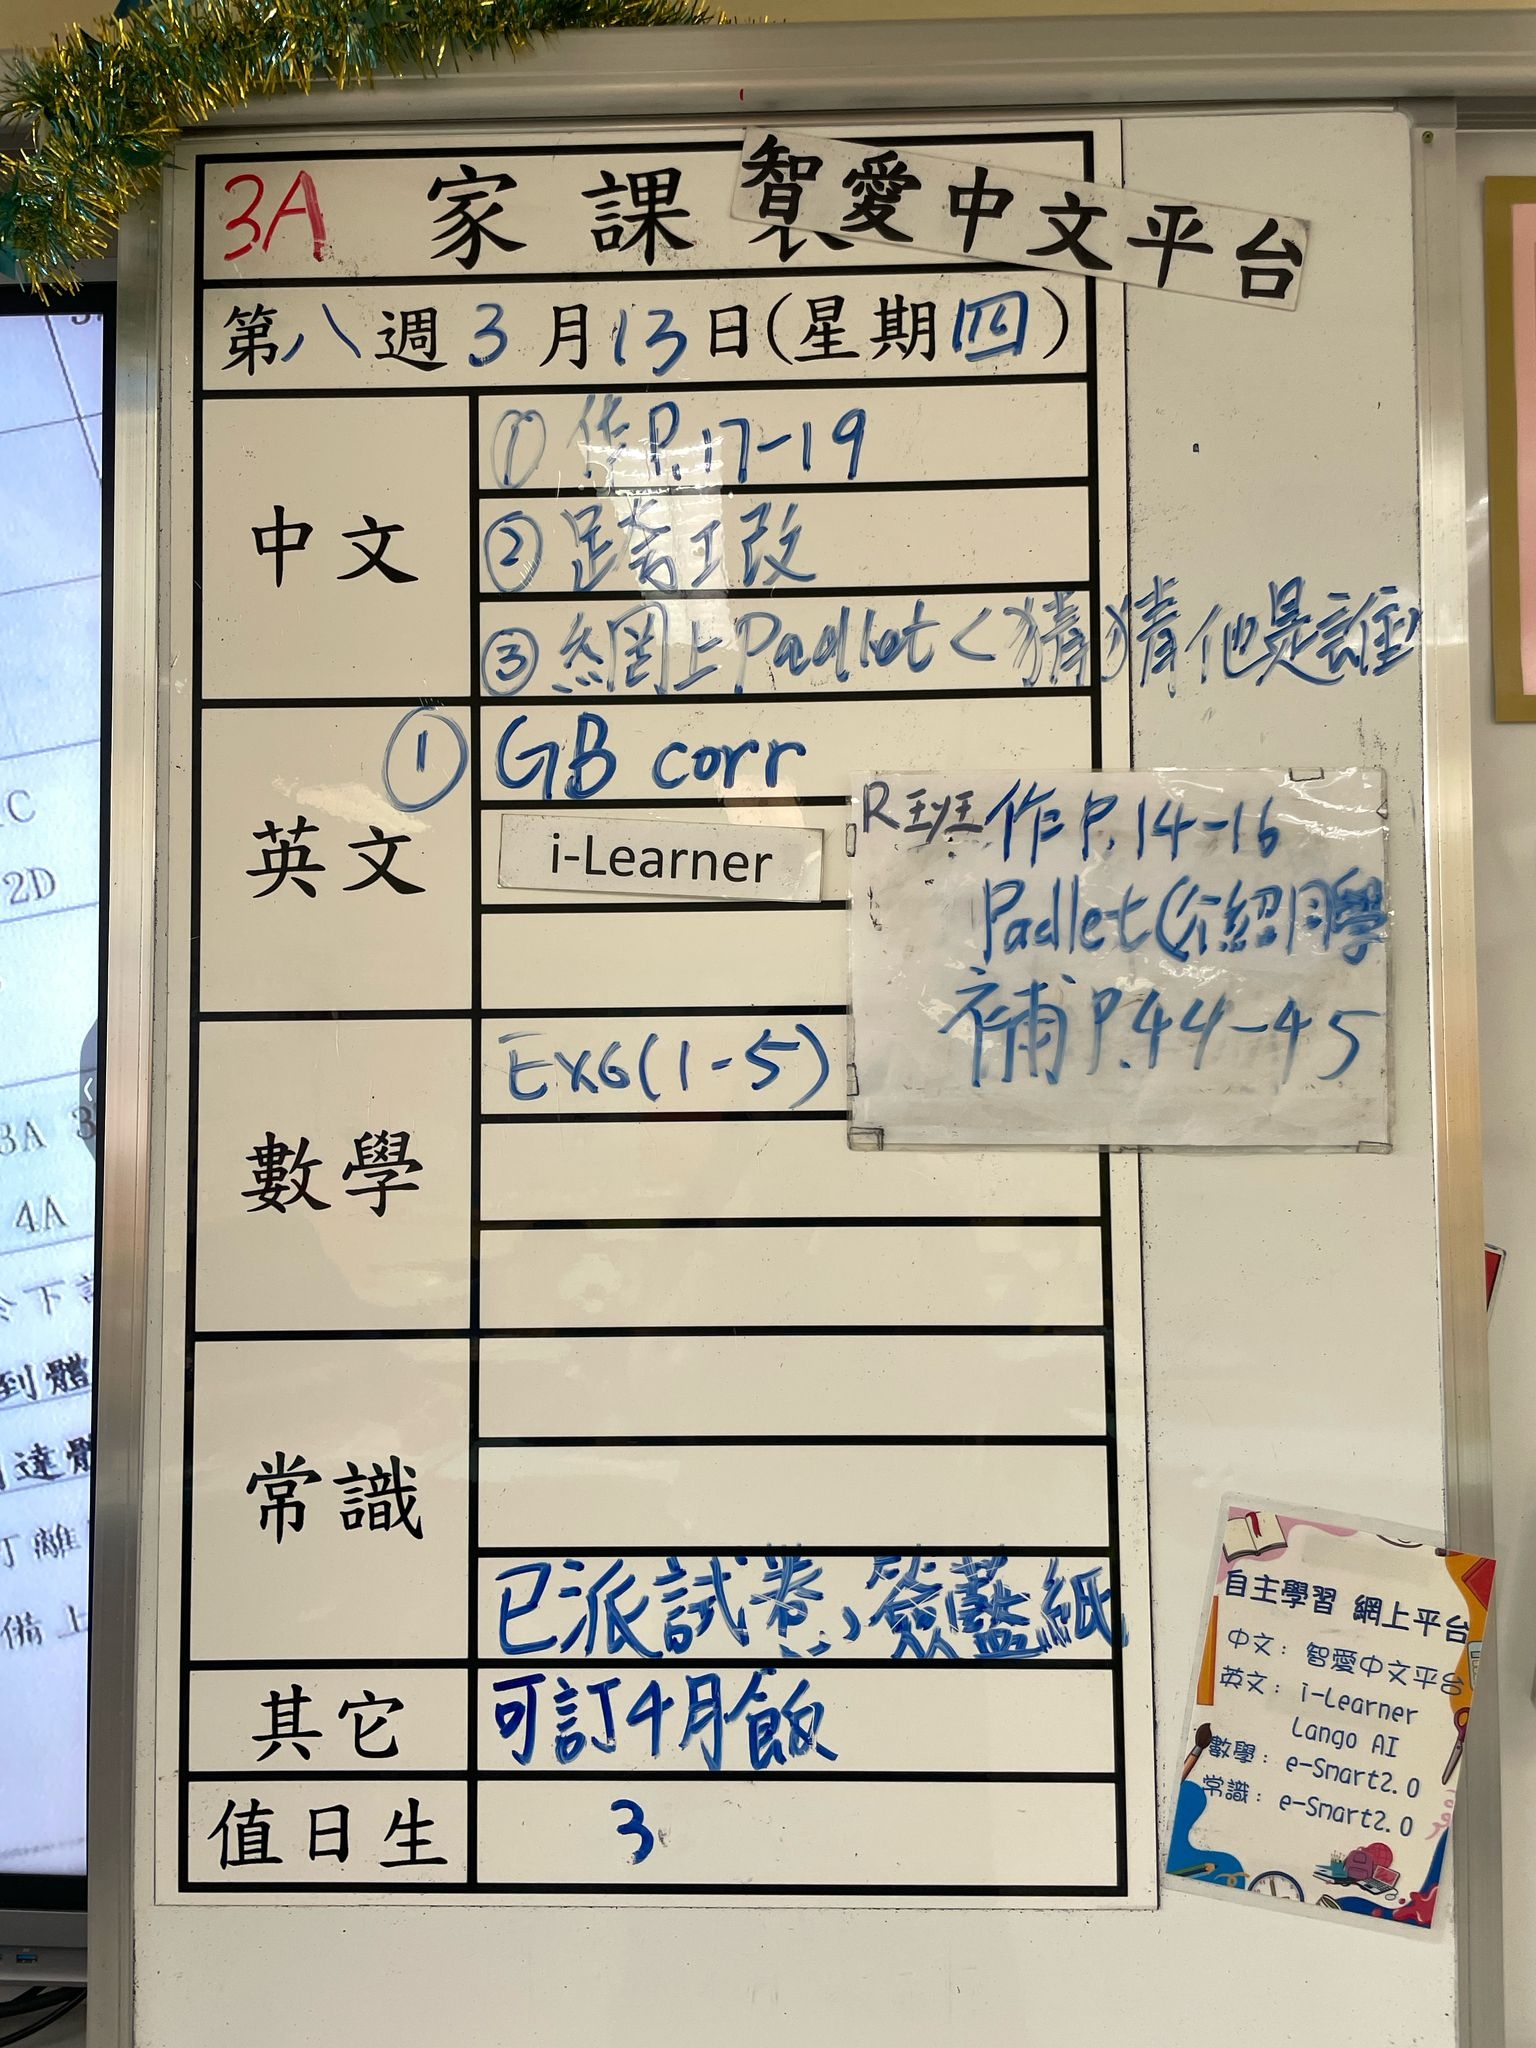 3A 家課表
智愛中文平台
第八週3月13日(星期四)
中文
① 作P.17-19
② 跨工改
③ 網上Padlet<猜猜他是誰>
英文
① GB corr
i-Learner
R班 作P.14-16
Padlet(介紹同學
補P.44-45
數學
Ex6(1-5)
常識
已派試卷,簽藍紙
其它
可訂4月飯
值日生
3
自主學習 網上平台
中文：智愛中文平台
英文：i-Learner
Lango AI
數學：e-Smart2.0
常識：e-Smart2.0
2D
3A 3
4A
到體
達
離
備上